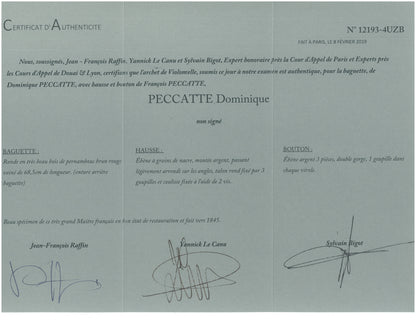 CERTIFICAT D'AUTHENTICITE
N° 12193-4UZB
FAIT À PARIS, LE 8 FÉVRIER 2019
Nous, soussignés, Jean - François Raffin, Yannick Le Canu et Sylvain Bigot, Expert honoraire près la Cour d'Appel de Paris et Experts près
les Cours d'Appel de Douai & Lyon, certifions que l'archet de Violoncelle, soumis ce jour à notre examen est authentique, pour la baguette, de
Dominique PECCATTE, avec hausse et bouton de François PECCATTE,
PECCATTE Dominique
non signé
BAGUETTE :
Ronde en très beau bois de pernambouc brun rouge
veiné de 68,5cm de longueur. (enture arrière
baguette)
HAUSSE :
Ébène à grains de nacre, montée argent, passant
légèrement arrondi sur les angles, talon rond fixé par 3
goupilles et coulisse fixée à l'aide de 2 vis.
BOUTON :
Ébène argent 3 pièces, double gorge, 1 goupille dans
chaque virole.
Beau spécimen de ce très grand Maître français en bon état de restauration et fait vers 1845.
Jean-François Raffin
Yannick Le Canu
Sylvain Bigot